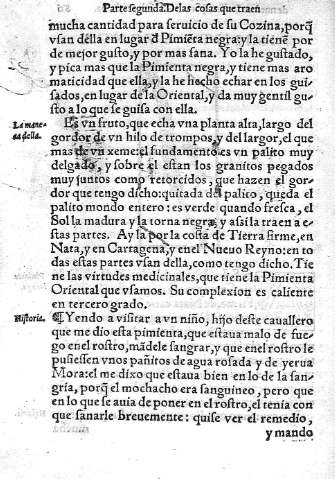 Parte segunda. De las cosas que traen
mucha cantidad para seruicio de su Cozina, porq̃
vsan della en lugar đ Pimiẽta negra: y la tienẽ por
de mejor gusto, y por mas sana. Yo la he gustado,
y pica mas que la Pimienta negra, y tiene mas aro
maticidad que ella, y la he hecho echar en los gui-
sados, en lugar de la Oriental, y da muy gentil gu-
sto a lo que se guisa con ella.
La mane-
ra della.
Es vn fruto, que echa vna planta alta, largo del
gordor de vn hilo de trompos, y del largor, el que
mas de vn xeme: el fundamento es vn palito muy
delgado, y sobre el estan los granitos pegados
muy juntos como retorcidos, que hazen el gor-
dor que tengo dicho: quitada del palito, queda el
palito mondo entero: es verde quando fresca, el
Sol la madura y la torna negra, y assi la traen a e-
stas partes. Ay la por la costa de Tierra firme, en
Nata, y en Cartagena, y en el Nueuo Reyno: en to
das estas partes vsan della, como tengo dicho. Tie
ne las virtudes medicinales, que tiene la Pimienta
Oriental que vsamos. Su complexion es caliente
en tercero grado.
Historia.
¶ Yendo a visitar a vn niño, hijo deste cauallero
que me dio esta pimienta, que estaua malo de fue-
go en el rostro, mãdele sangrar, y que en el rostro le
pusiessen vnos pañitos de agua rosada y de yerua
Mora: el me dixo que estaua bien en lo de la san-
gria, porq̃ el mochacho era sanguineo, pero que
en lo que se auia de poner en el rostro, el tenia con
que sanarle breuemente: quise ver el remedio,
y mando